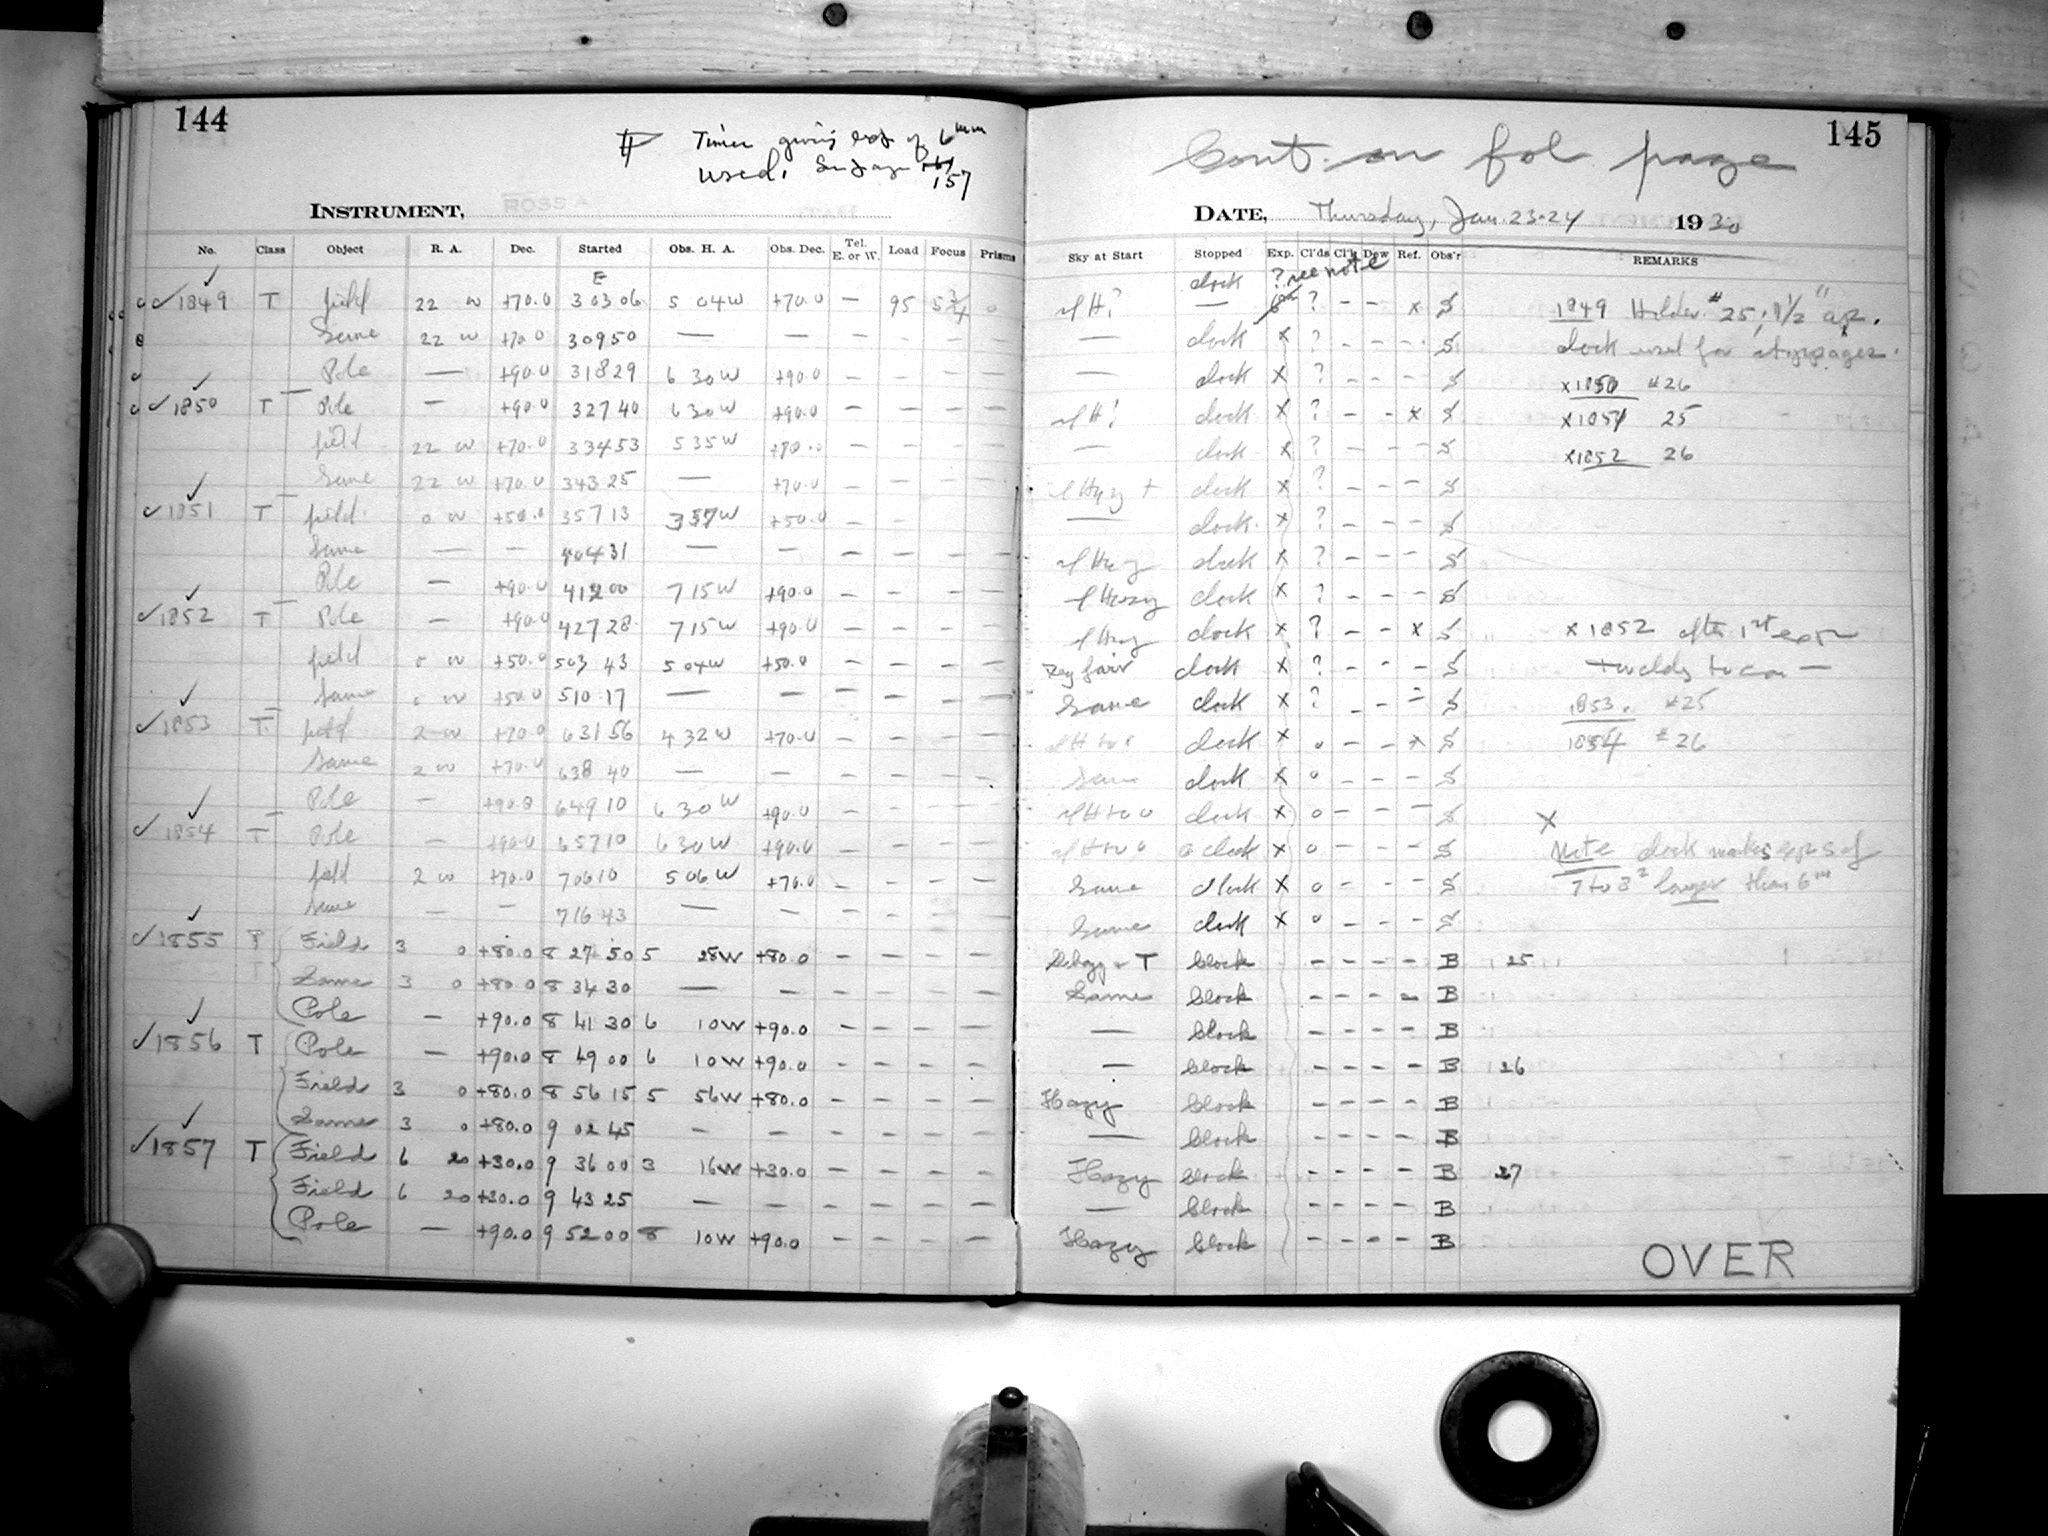 144
Timer giving exp of 6 mm
used, See page 157
INSTRUMENT, ROSS A
No. Class Object R. A. Dec. Started Obs. H. A. Obs. Dec. Tel. E. or W. Load Focus Prisms
E
✓1849 T field 22 W +70.0 30306 5 04W +70.0 — 95
Same 22 W +70.0 30950 — — — — — —
Pole — +90.0 31829 6 30W +90.0 — — — —
✓1850 T Pole — +90.0 32740 630W +90.0 — — — —
field 22 W +70.0 33453 535W +70.0 — — — —
Same 22 W +70.0 34325 — +70.0 — — — —
✓1851 T field 0 W +50.0 35713 357W +50.0 — —
Same — — 40431 — — — — — —
Pole — +90.0 41200 715W +90.0 — — — —
✓1852 T Pole — +90.0 42728 715W +90.0 — — — —
field 0 W +50.0 503 43 504W +50.0 — — — —
Same 0 W +50.0 510 17 — — — — — —
✓1853 T field 2 W +70.0 63156 432W +70.0 — — — —
Same 2 W +70.0 638 40 — — — — — —
Pole — +90.0 64910 630W +90.0 — — — —
✓1854 T Pole — +90.0 65710 630W +90.0 — — — —
field 2 W +70.0 70610 506W +70.0 — — — —
Same — — 71643 — — — — — —
✓1855 Field 3 0 +80.0 8 27 50 5 28W +80.0 — — — —
Same 3 0 +80.0 8 34 30 — — — — — —
Pole — +90.0 8 41 30 6 10W +90.0 — — — —
✓1856 T Pole — +90.0 8 49 00 6 10W +90.0 — — — —
Field 3 0 +80.0 8 56 15 5 56W +80.0 — — — —
Same 3 0 +80.0 9 02 45 — — — — — —
✓1857 T Field 6 20 +30.0 9 36 00 3 16W +30.0 — — — —
Field 6 20 +30.0 9 43 25 — — — — — —
Pole — +90.0 9 52 00 8 10W +90.0 — — — —
145
Cont. on fol page
DATE, Thursday, Jan. 23-24 1930
Sky at Start Stopped Exp. Cl'ds Cl'k Dew Ref. Obs'r REMARKS
clock ? see note
— ? — — x S 1849 Holder #25; 1½" ap.
— clock x ? — — — S clock used for stoppages.
— clock x ? — — — S x1850 #26
clock x ? — — x S x1851 25
— clock x ? — — — S x1852 26
clock x ? — — — S
— clock x ? — — — S
clock x ? — — — S
clock x ? — — — S
clock x ? — — x S x 1852 after 1st expn
fair clock x ? — — — S
Same clock x ? — — — S 1853. #25
clock x 0 — — x S 1854 #26
Same clock x 0 — — — S
clock x 0 — — — S x
clock x 0 — — — S Note clock makes exps of
Same clock x 0 — — — S 7 to 8s longer than 6m
Same clock x 0 — — — S
T Clock — — — — B 25
Same Clock — — — — B
— Clock — — — — B
— Clock — — — — B 26
Hazy Clock — — — — B
— Clock — — — — B
Hazy Clock — — — — B 27
— Clock — — — — B
Hazy Clock — — — — B
OVER